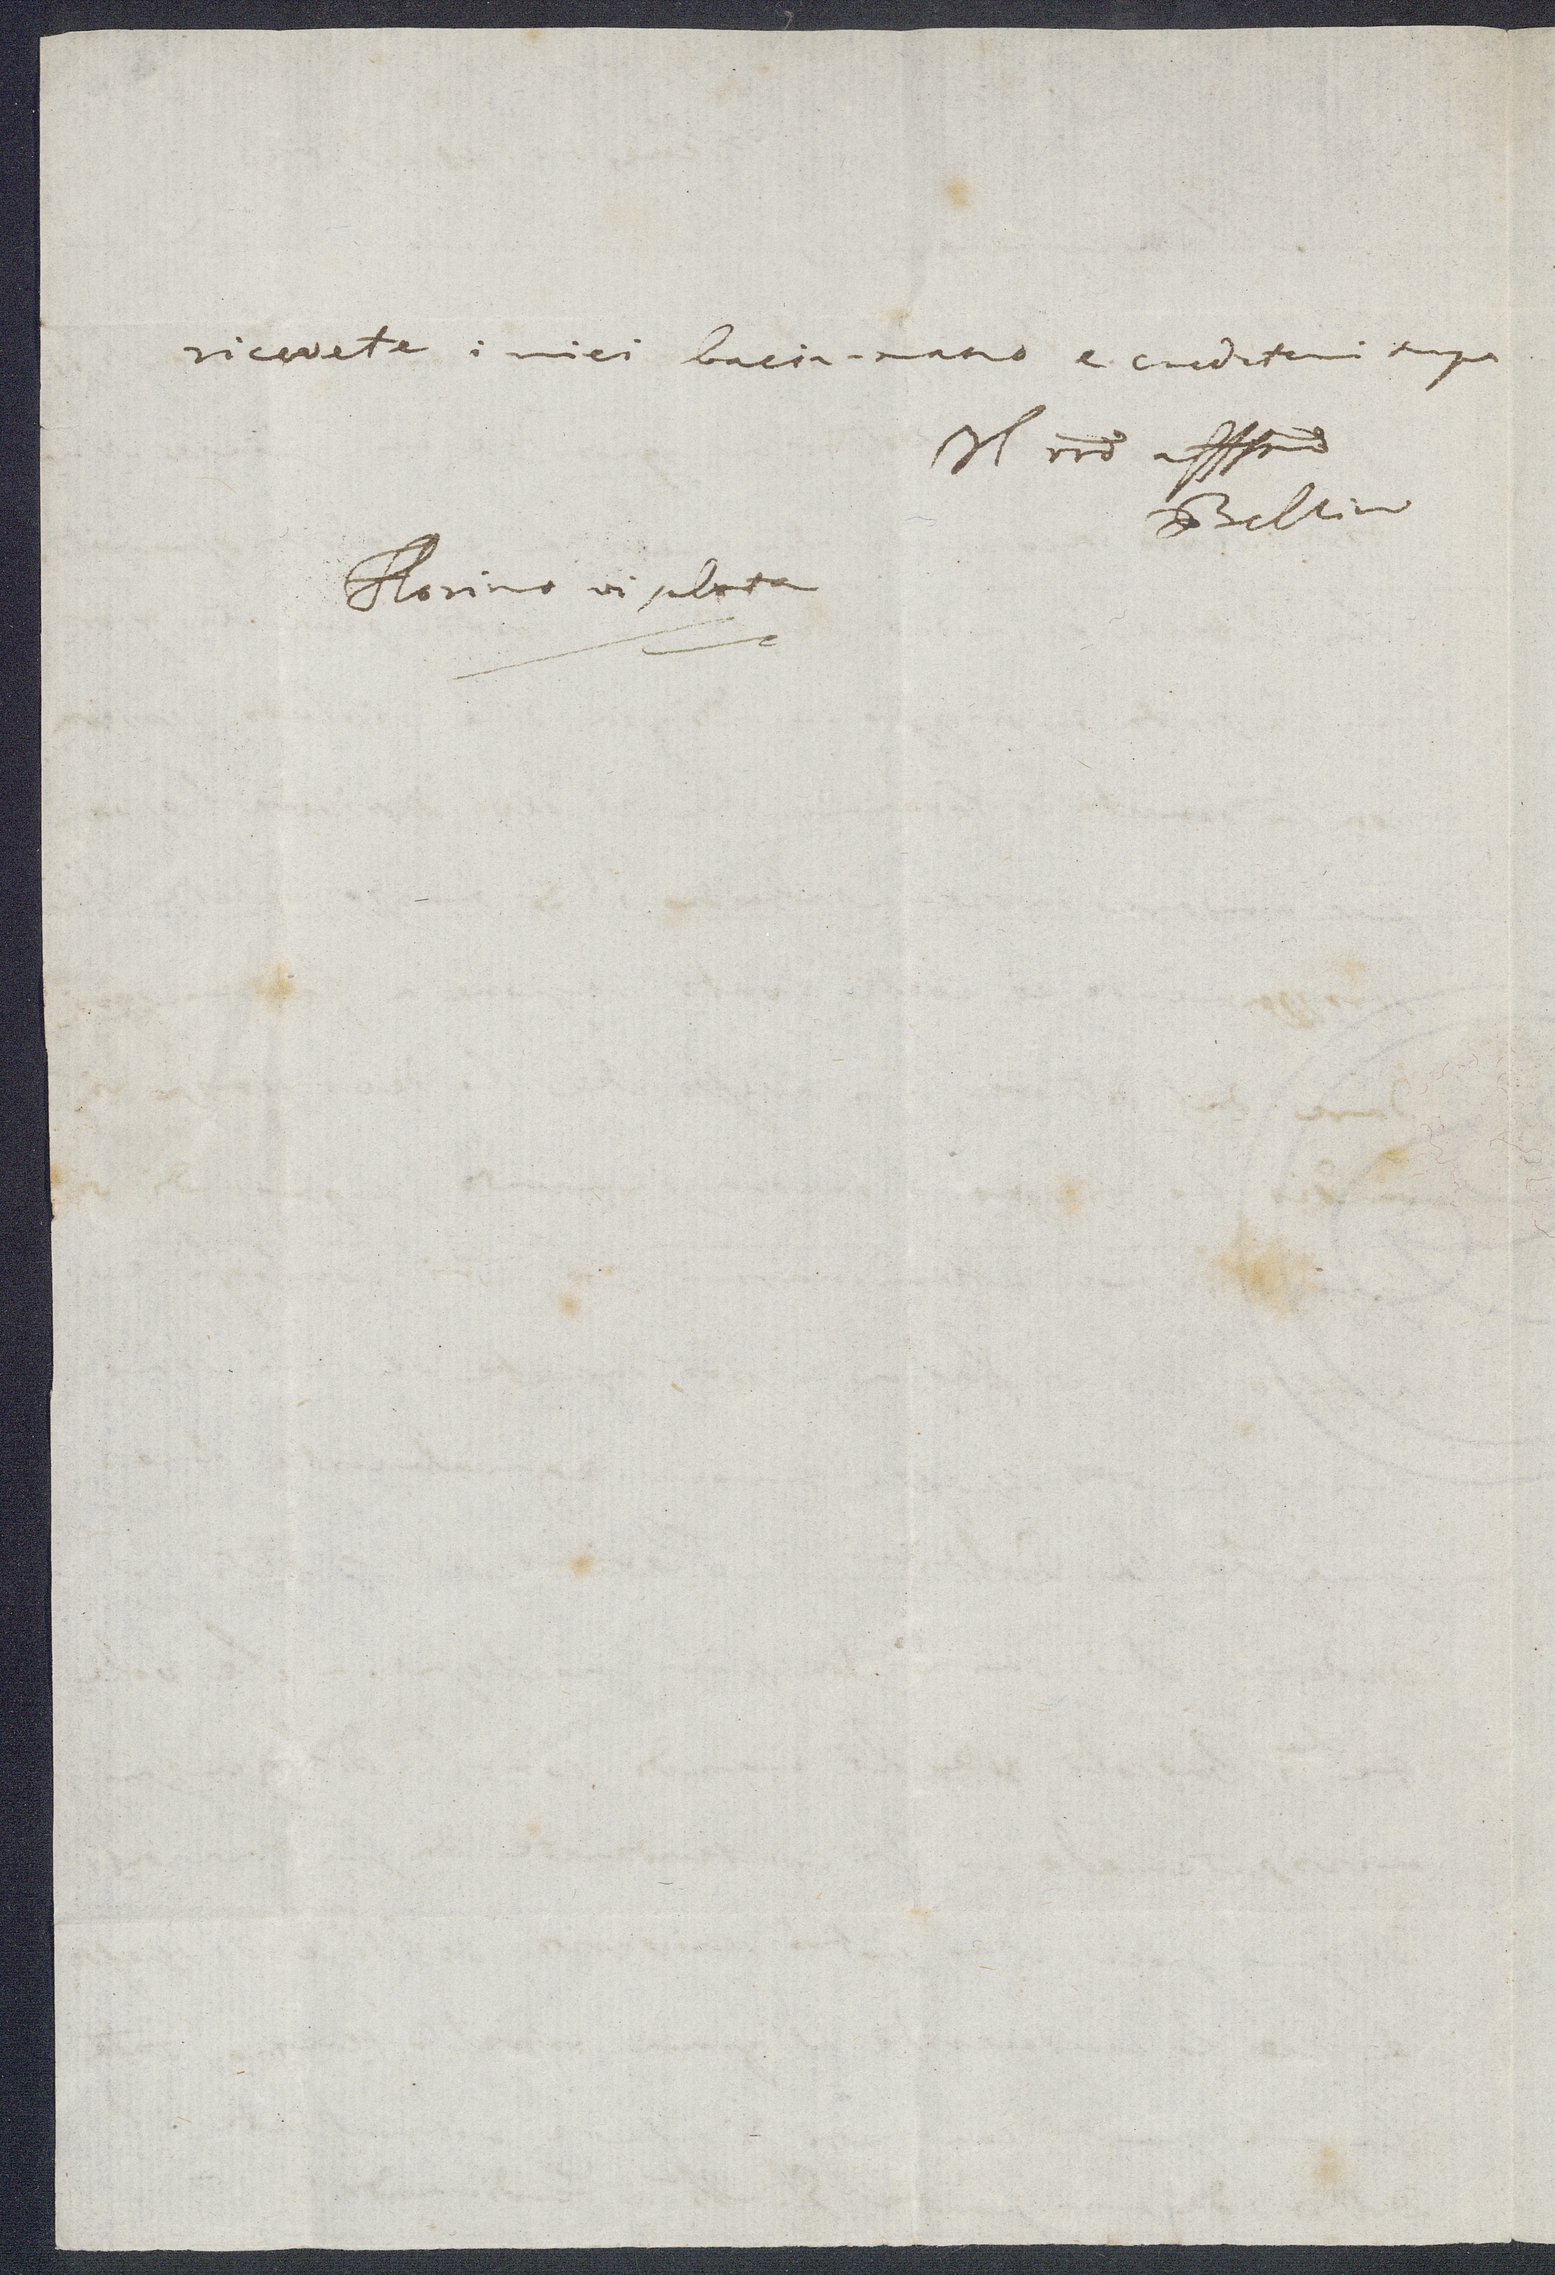 ricevete i miei bacia-mano e credetemi sempre
Il vro affmo
Bellini
Florimo vi saluta